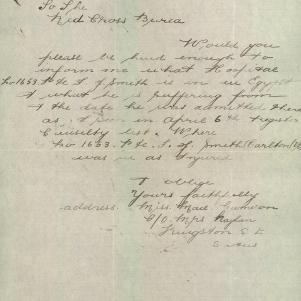 To The
Red Cross Burea
Would you
please be kind enough to
inform me what Hospital
No 1653. Pte L. J Smith is in in Egypt
& what he is suffering from
& the date he was admitted there
as I seen in april 6th register
Causelty list. Where
No 1653. Pte. L. J. Smith (Carlton)
was in as Injured
I oblige
Yours faithfully
address. Miss. Maud
C/O Mrs
Kingston S E
S Aus